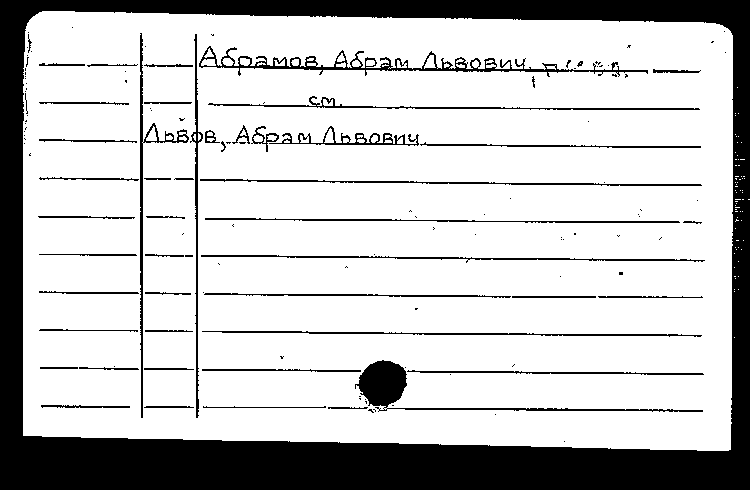 Абрамов, Абрам Львович,
см.
Львов, Абрам Львович.